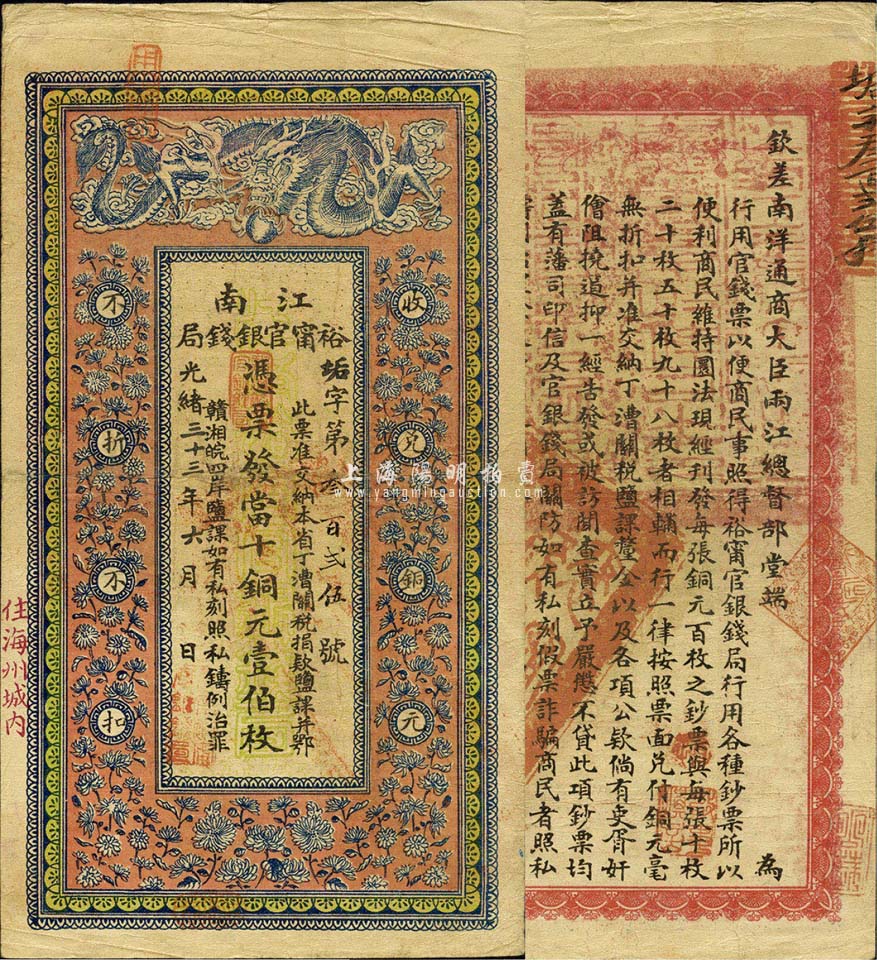 江南
裕甯官銀錢局
垢字第叁百弍伍號
此票准交納本省丁漕關稅捐款鹽課并鄂
憑票發當十銅元壹佰枚
贛湘皖四岸鹽課如有私刻照私鑄例治罪
光緒三十三年六月 日
收兌銅元
不折不扣
住海州城内
上海陽明拍賣
www.yangmingauction.com
欽差南洋通商大臣兩江總督部堂端 為
行用官錢票以便商民事照得裕甯官銀錢局行用各種鈔票所以
便利商民維持圜法現經刊發每張銅元百枚之鈔票與每張十枚
二十枚五十枚九十八枚者相輔而行一律按照票面兌付銅元毫
無折扣并准交納丁漕關稅鹽課釐金以及各項公款倘有吏胥奸
儈阻撓遏抑一經告發或被訪聞查實立予嚴懲不貸此項鈔票均
蓋有藩司印信及官銀錢局關防如有私刻假票詐騙商民者照私